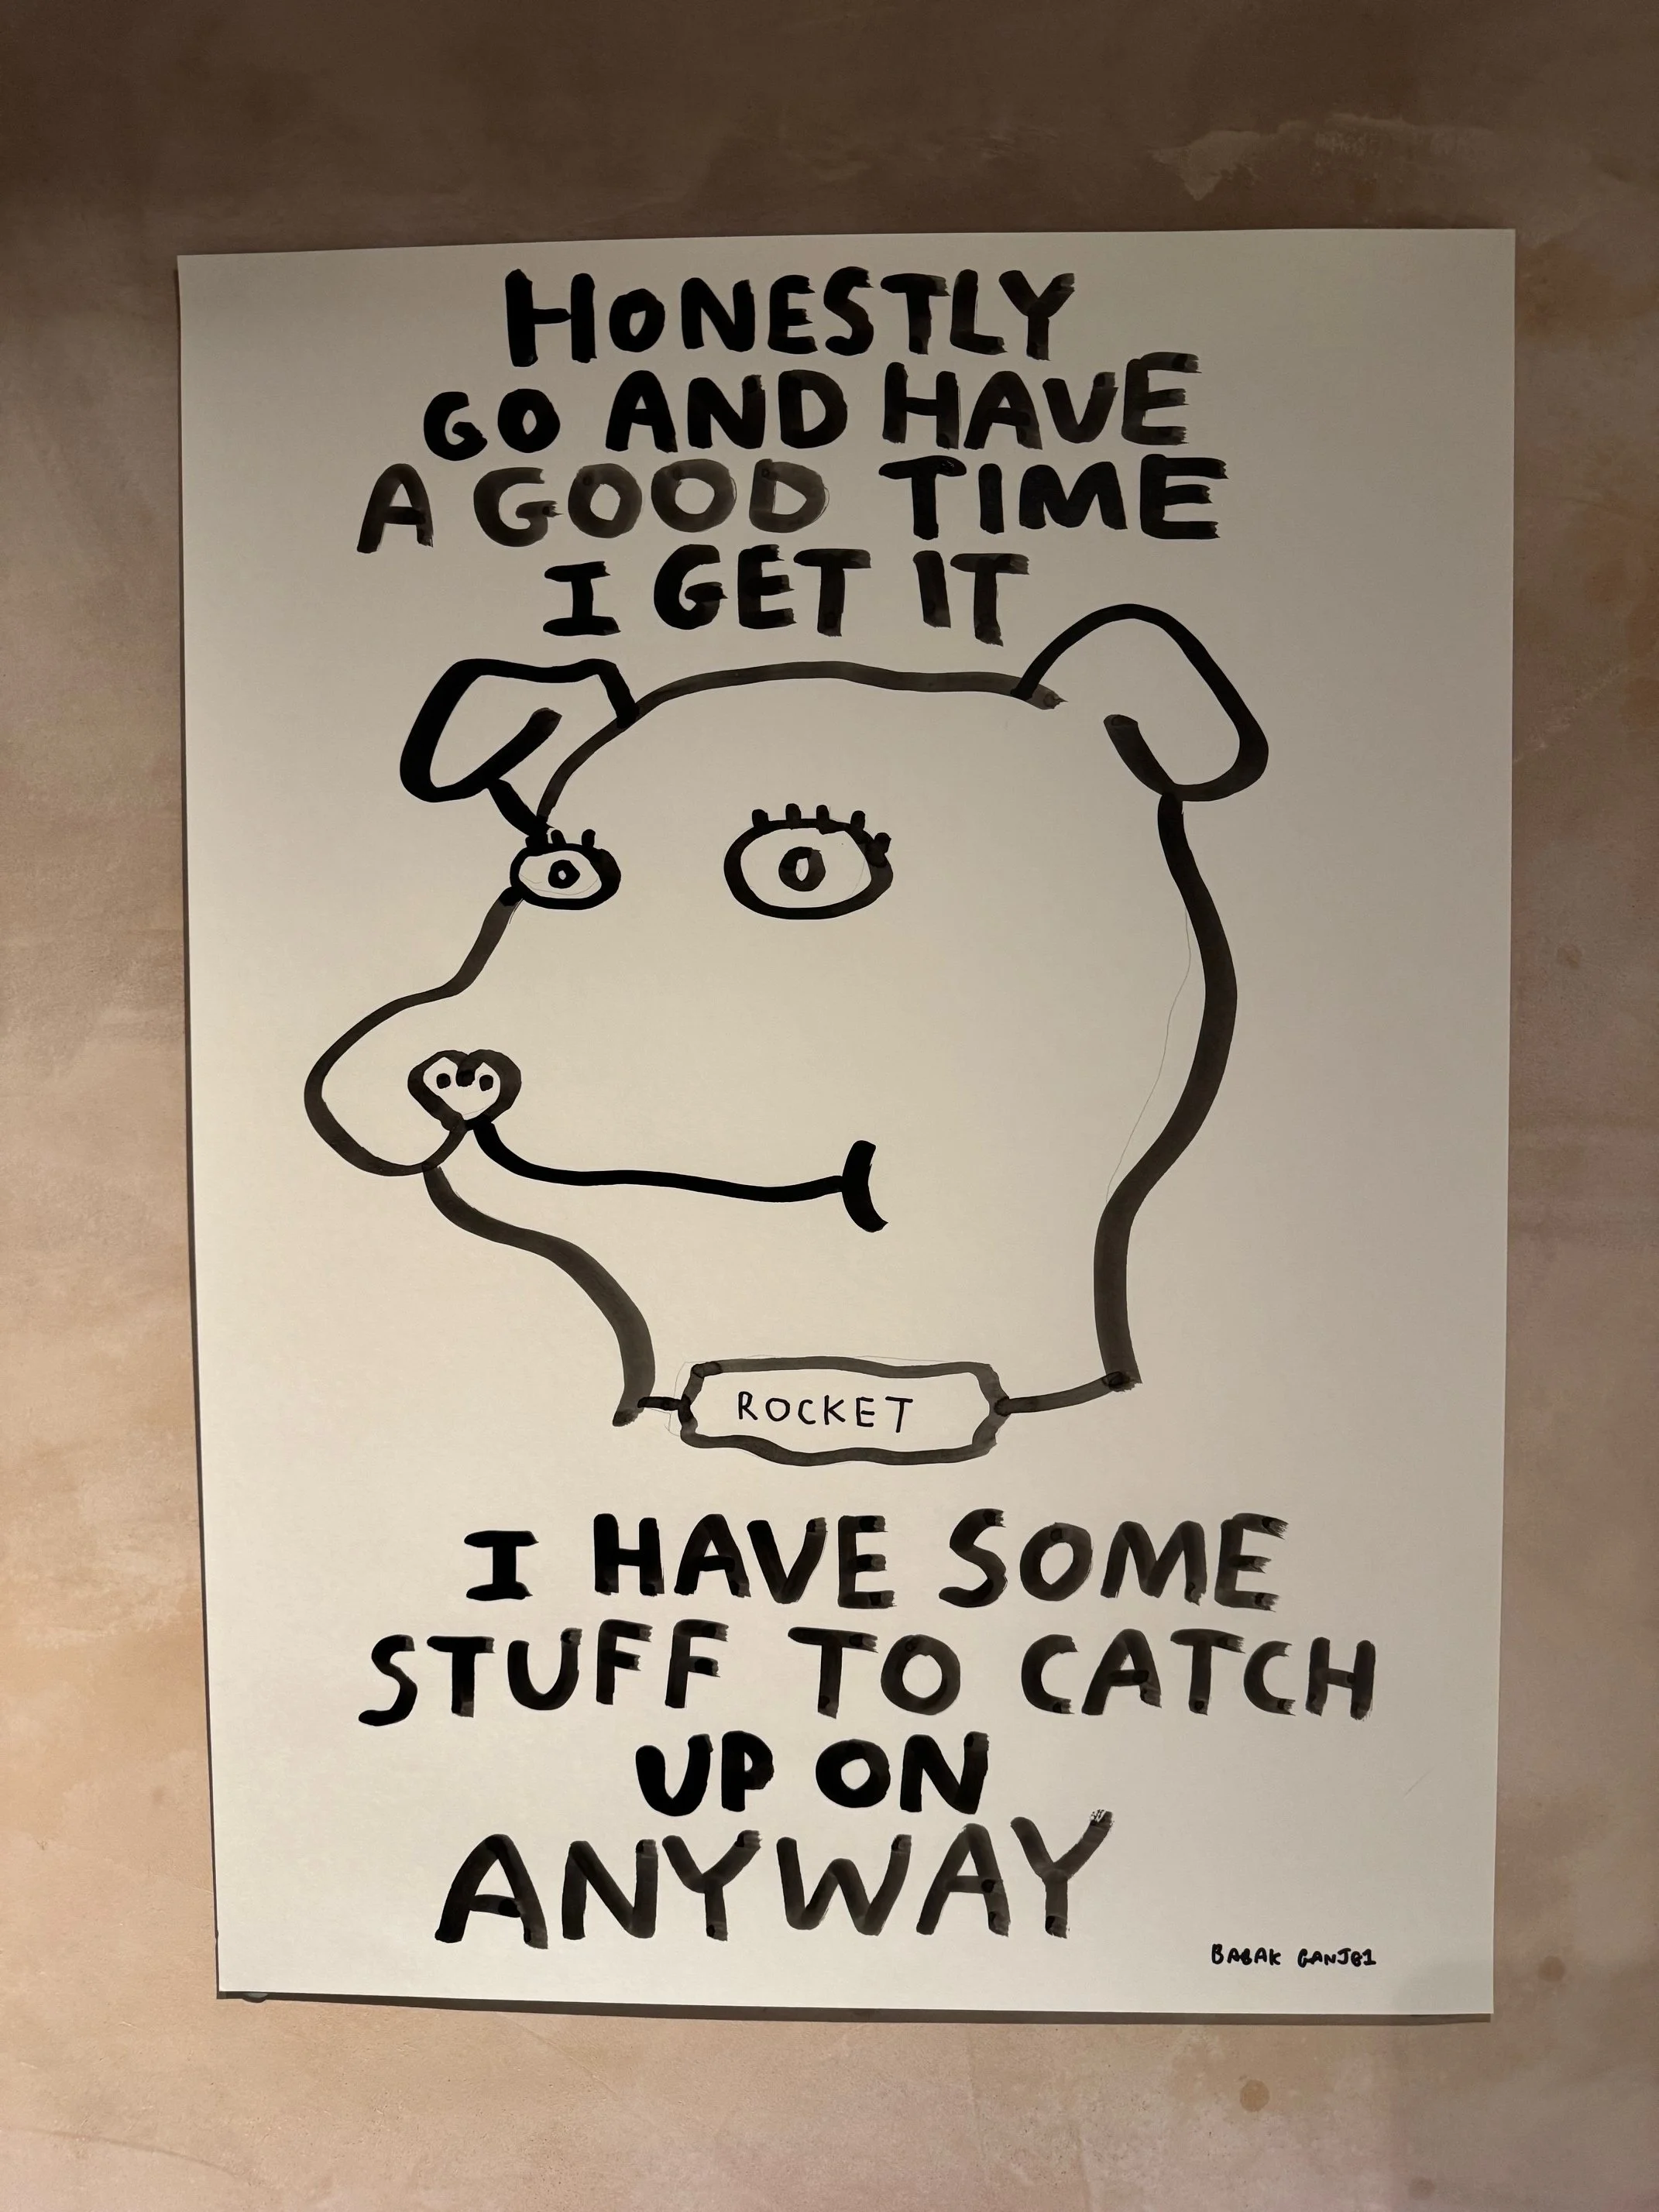 HONESTLY
GO AND HAVE
A GOOD TIME
I GET IT
ROCKET
I HAVE SOME
STUFF TO CATCH
UP ON
ANYWAY
BABAK GANJEI